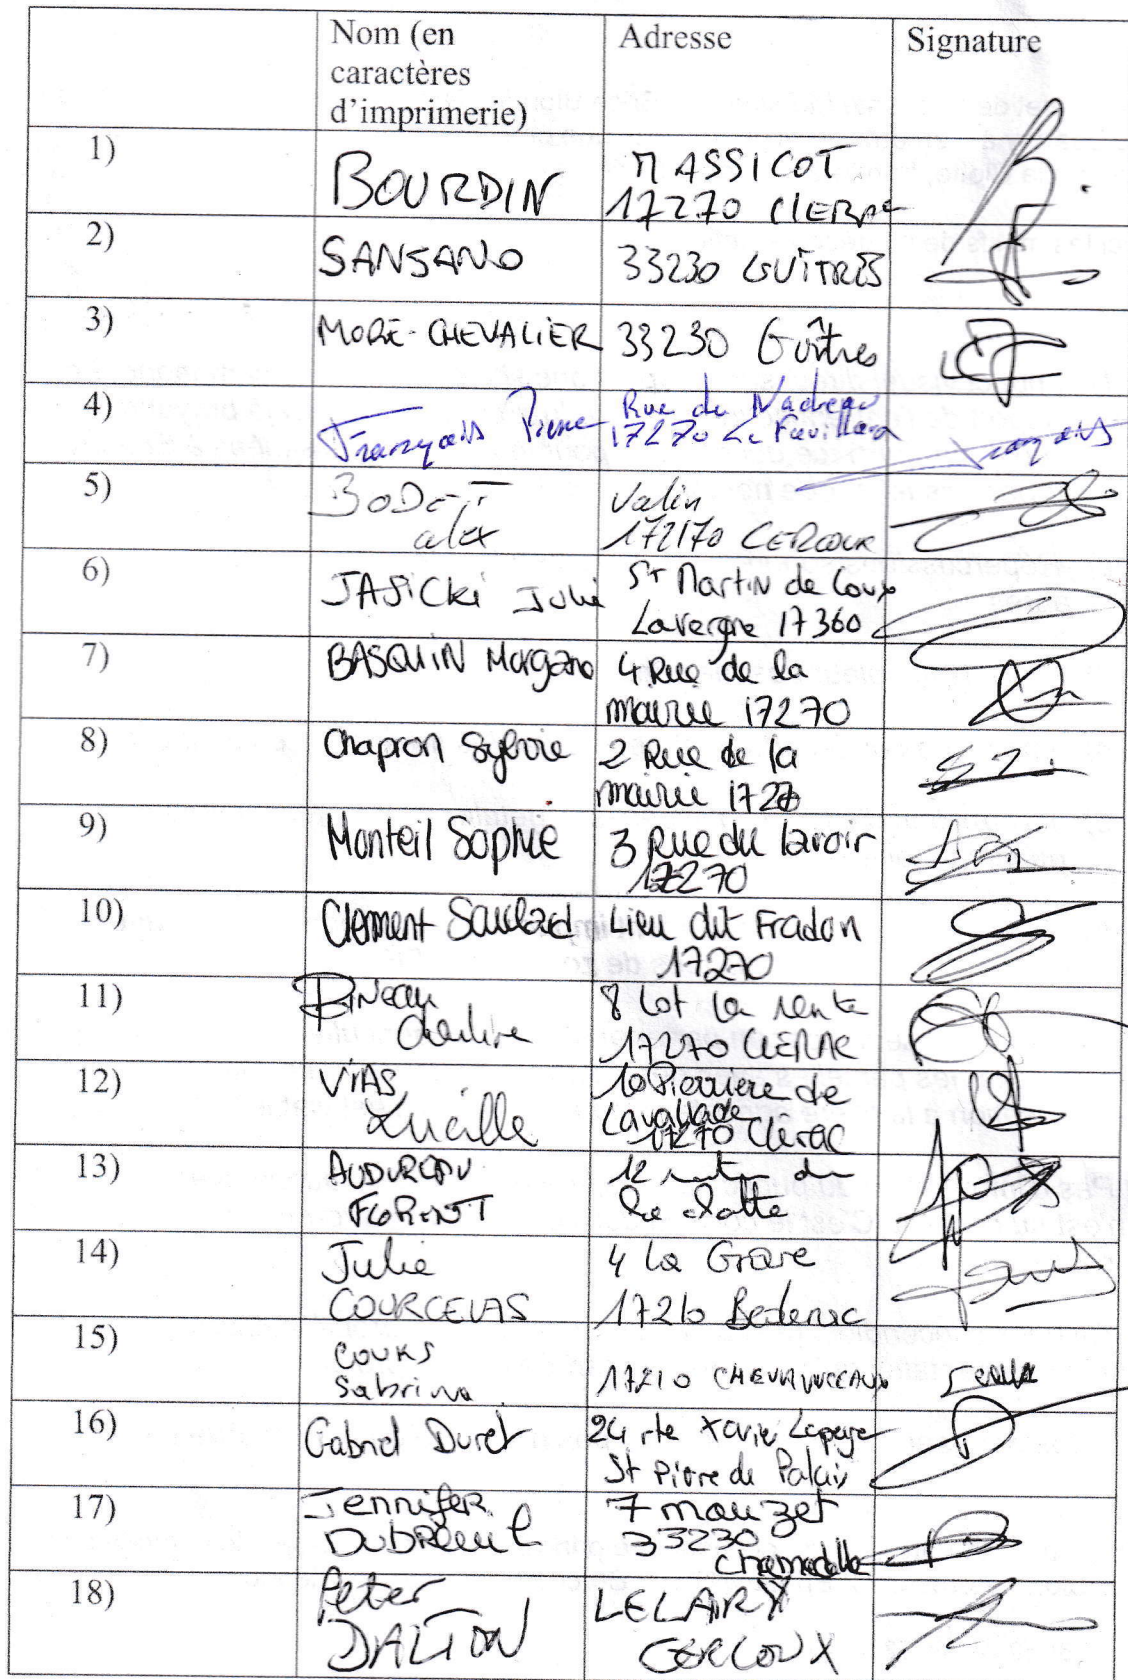 Nom (en
caractères
d'imprimerie)
Adresse
Signature
1)
BOURDIN
MASSICOT
17270 CLERAC
2)
SANSANO
33230 GUÎTRES
3)
MORE-CHEVALIER
33230 Guîtres
4)
François Pierre
Rue du Nadreau
17270 Le Fouilloux
François
5)
BODET
alex
Valin
172170 CERCOUX
6)
JASICKi Julie
St Martin de Coux
Lavergne 17360
7)
BASQUIN Morgane
4 Rue de la
mairie 17270
8)
Chapron Sylvie
2 Rue de la
mairie 17270
9)
Monteil Sophie
3 Rue du lavoir
17270
10)
Clement
Lieu dit Fradon
17270
11)
Pineau
8 Lot la
17270 CLERAC
12)
VIAS
Lucille
10 Pierriere de
Lavallade
17270 Clerac
13)
AUDUREAU
FLORENT
12 route de
la clotte
14)
Julie
COURCELAS
4 La Grave
17210 Bedenac
15)
COURS
Sabrina
17210 CHEVANCEAUX
16)
Gabriel Duret
24 rte Xavier
St Pierre de Palais
17)
Jennifer
DUBREUIL
7 mauzet
33230
Chamadelle
18)
Peter
DALTON
CERCOUX